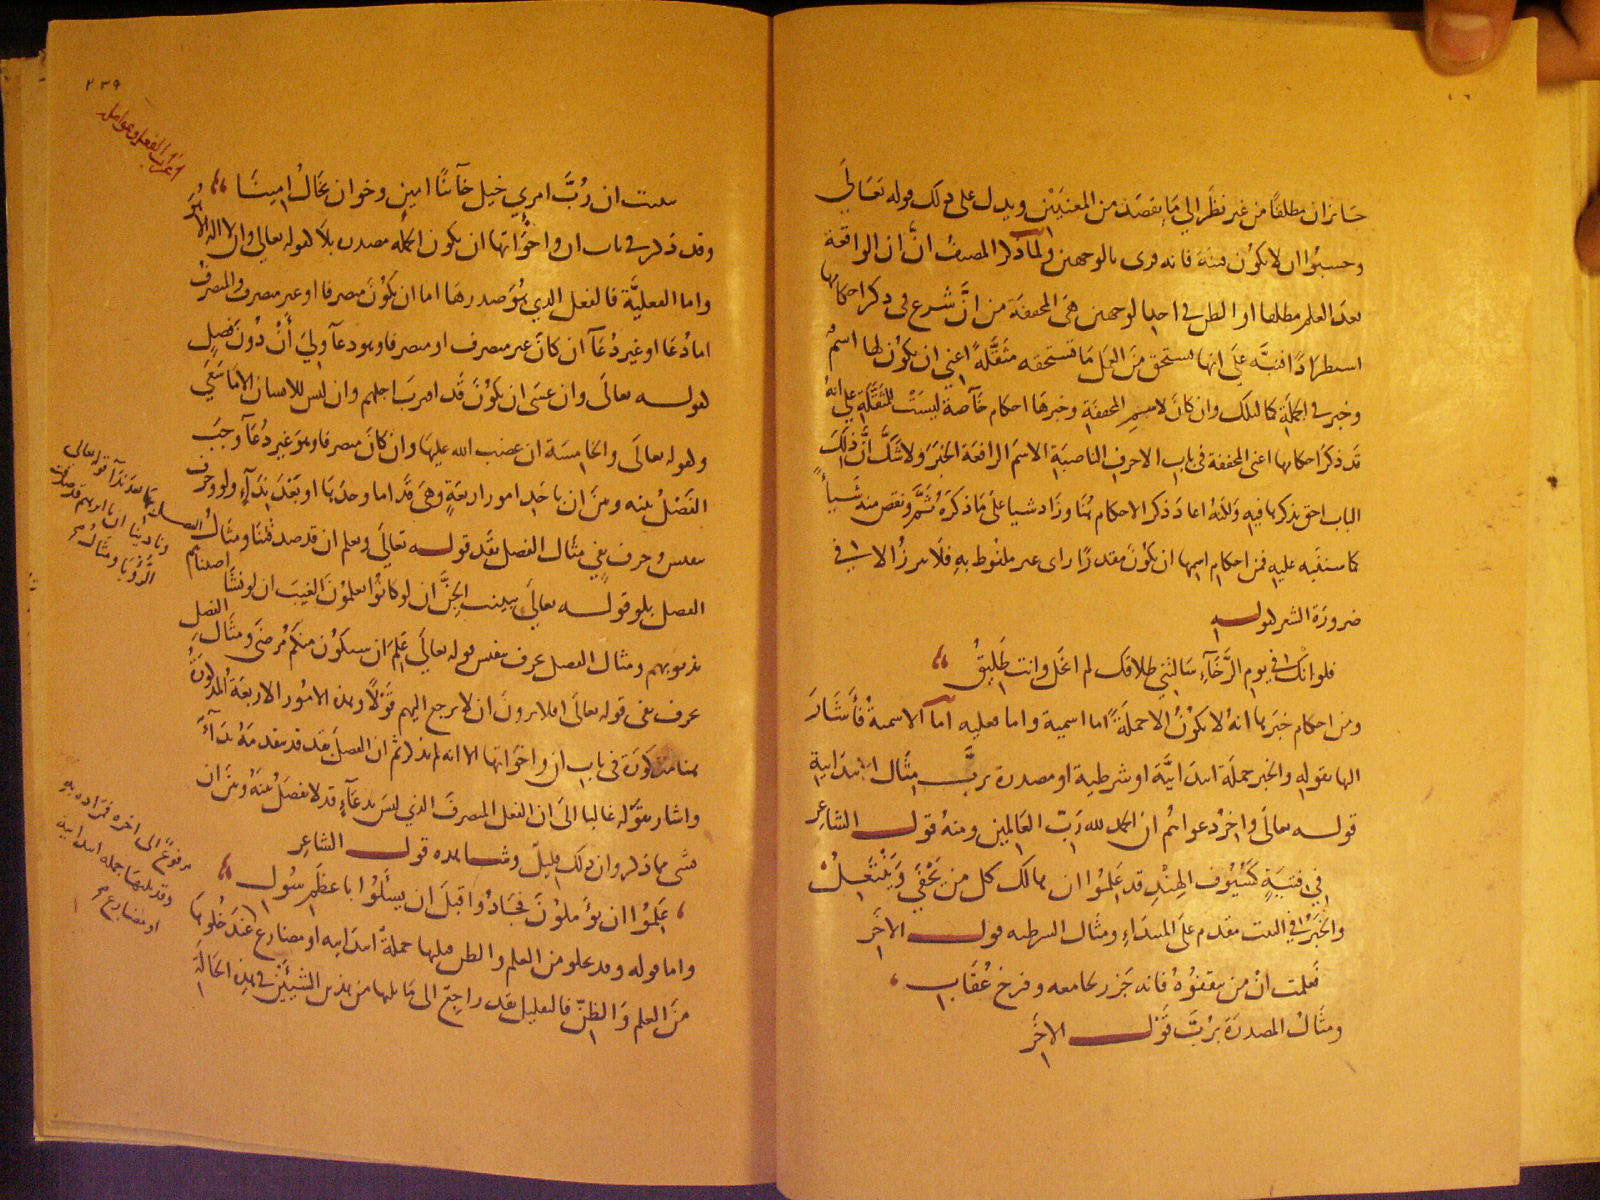 جائزان مطلقا من غير نظر الى ما يقصد من المعنيين ويدل على ذلك قوله تعالى
وحسبوا ان لا تكون فتنة فانه قرى بالوجهين ولما ذكر المصنف ان ان الواقعة
بعد العلم مطلقا او الظن في احد الوجهين هي المخففة من ان شرع في ذكر احكامها
استطرادا فنبه على انها تستحق من العمل ما تستحقه مثقلة اعني ان يكون لها اسم
وخبر في الجملة كما لتلك وان كان لاسم المخففة وخبرها احكام خاصة ليست للمثقلة على انه
قد ذكر احكامها اعني المخففة في باب الاحرف الناصبة الاسم الرافعة الخبر ولا شك ان ذلك
الباب احق بذكرها فيه ولكنه اعاد ذكر الاحكام هنا وزاد شيا على ما ذكره ثم ونقص منه شيأ
كما سنقبه عليه فمن احكام اسمها ان يكون مقدرا اى غير ملفوظ به فلا يبرز الا في
ضرورة الشعر كقوله
فلو انك في يوم الرخاء سالتني طلاقك لم ابخل وانت طليق
ومن احكام خبرها انه لا يكون الا جملة اما اسمية واما فعلية اما الاسمية فأشار
اليها بقوله والخبر جملة ابتدائية او شرطية او مصدرة برب مثال الابتدائية
قوله تعالى واخر دعواهم ان الحمد لله رب العالمين ومنه قول الشاعر
في فتية كسيوف الهند قد علموا ان هالك كل من يحفى وينتعل
والخبر في البيت مقدم على المبتداء ومثال الشرطية قول الاخر
فعلمت ان من يثقفوه فانه جزر لخامعه وفرخ عقاب
ومثال المصدرة برب قول الاخر
٢٣٩
اعراب الفعل وعوامله
تيقنت ان رب امرئ خيل خائنا امين وخوان يخال امينا
وقد ذكر في باب ان واخواتها ان يكون الجملة مصدرة بلا كقوله تعالى وان لا اله الا هو
واما الفعلية فالفعل الذي هو صدرها اما ان يكون متصرفا او غير متصرف والمتصرف
اما دعا او غير دعا ان كان غير متصرف او متصرفا وهو دعا ولي أن دون فصل
كقوله تعالى وان عسى ان يكون قد اقترب اجلهم وان ليس للانسان الا ما سعى
وكقوله تعالى والخامسة ان غضب الله عليها وان كان متصرفا وهو غير دعا وجب
الفصل بينه وبين ان باحد امور اربعة وهي قد اما وحدها او بعد نداء ولو وحرف
تنفيس وحرف نفي مثال الفصل بقد قوله تعالى ونعلم ان قد صدقتنا ومثال
الفصل بلو قوله تعالى تبينت الجن ان لو كانوا يعلمون الغيب ان لو نشا اصبناهم
بذنوبهم ومثال الفصل بحرف تنفيس قوله تعالى علم ان سيكون منكم مرضى ومثال الفصل
بحرف نفي قوله تعالى افلا يرون ان لا يرجع اليهم قولا وهذه الامور الاربعة المذكورة
هنا مذكورة في باب ان واخواتها الا انه لم يذكر ثم ان الفصل بقد قد يتقدمه نداء
واشار بقوله غالبا الى ان الفعل المتصرف الذي ليس بدعاء قد لا يفصل بينه وبين ان
شى مما ذكر وان ذلك قليل وشاهده قول الشاعر
علموا ان يؤملون فجادوا قبل ان يسئلوا باعظم سول
واما قوله وقد يخلو من العلم والظن فيليها جملة ابتدائية او مضارع عند خلوها
من العلم والظن فالتعليل بقد راجع الى ما يليها من هذين الشيئين في هذه الحالة
الفصل بها بعد نداء قوله تعالى
وناديناه ان يا ابرهيم قد صدقت
الرؤيا ومثال صح
مرفوع الى اخره فمراده به
وقد يليها جمله ابتدائية
او مضارع صح